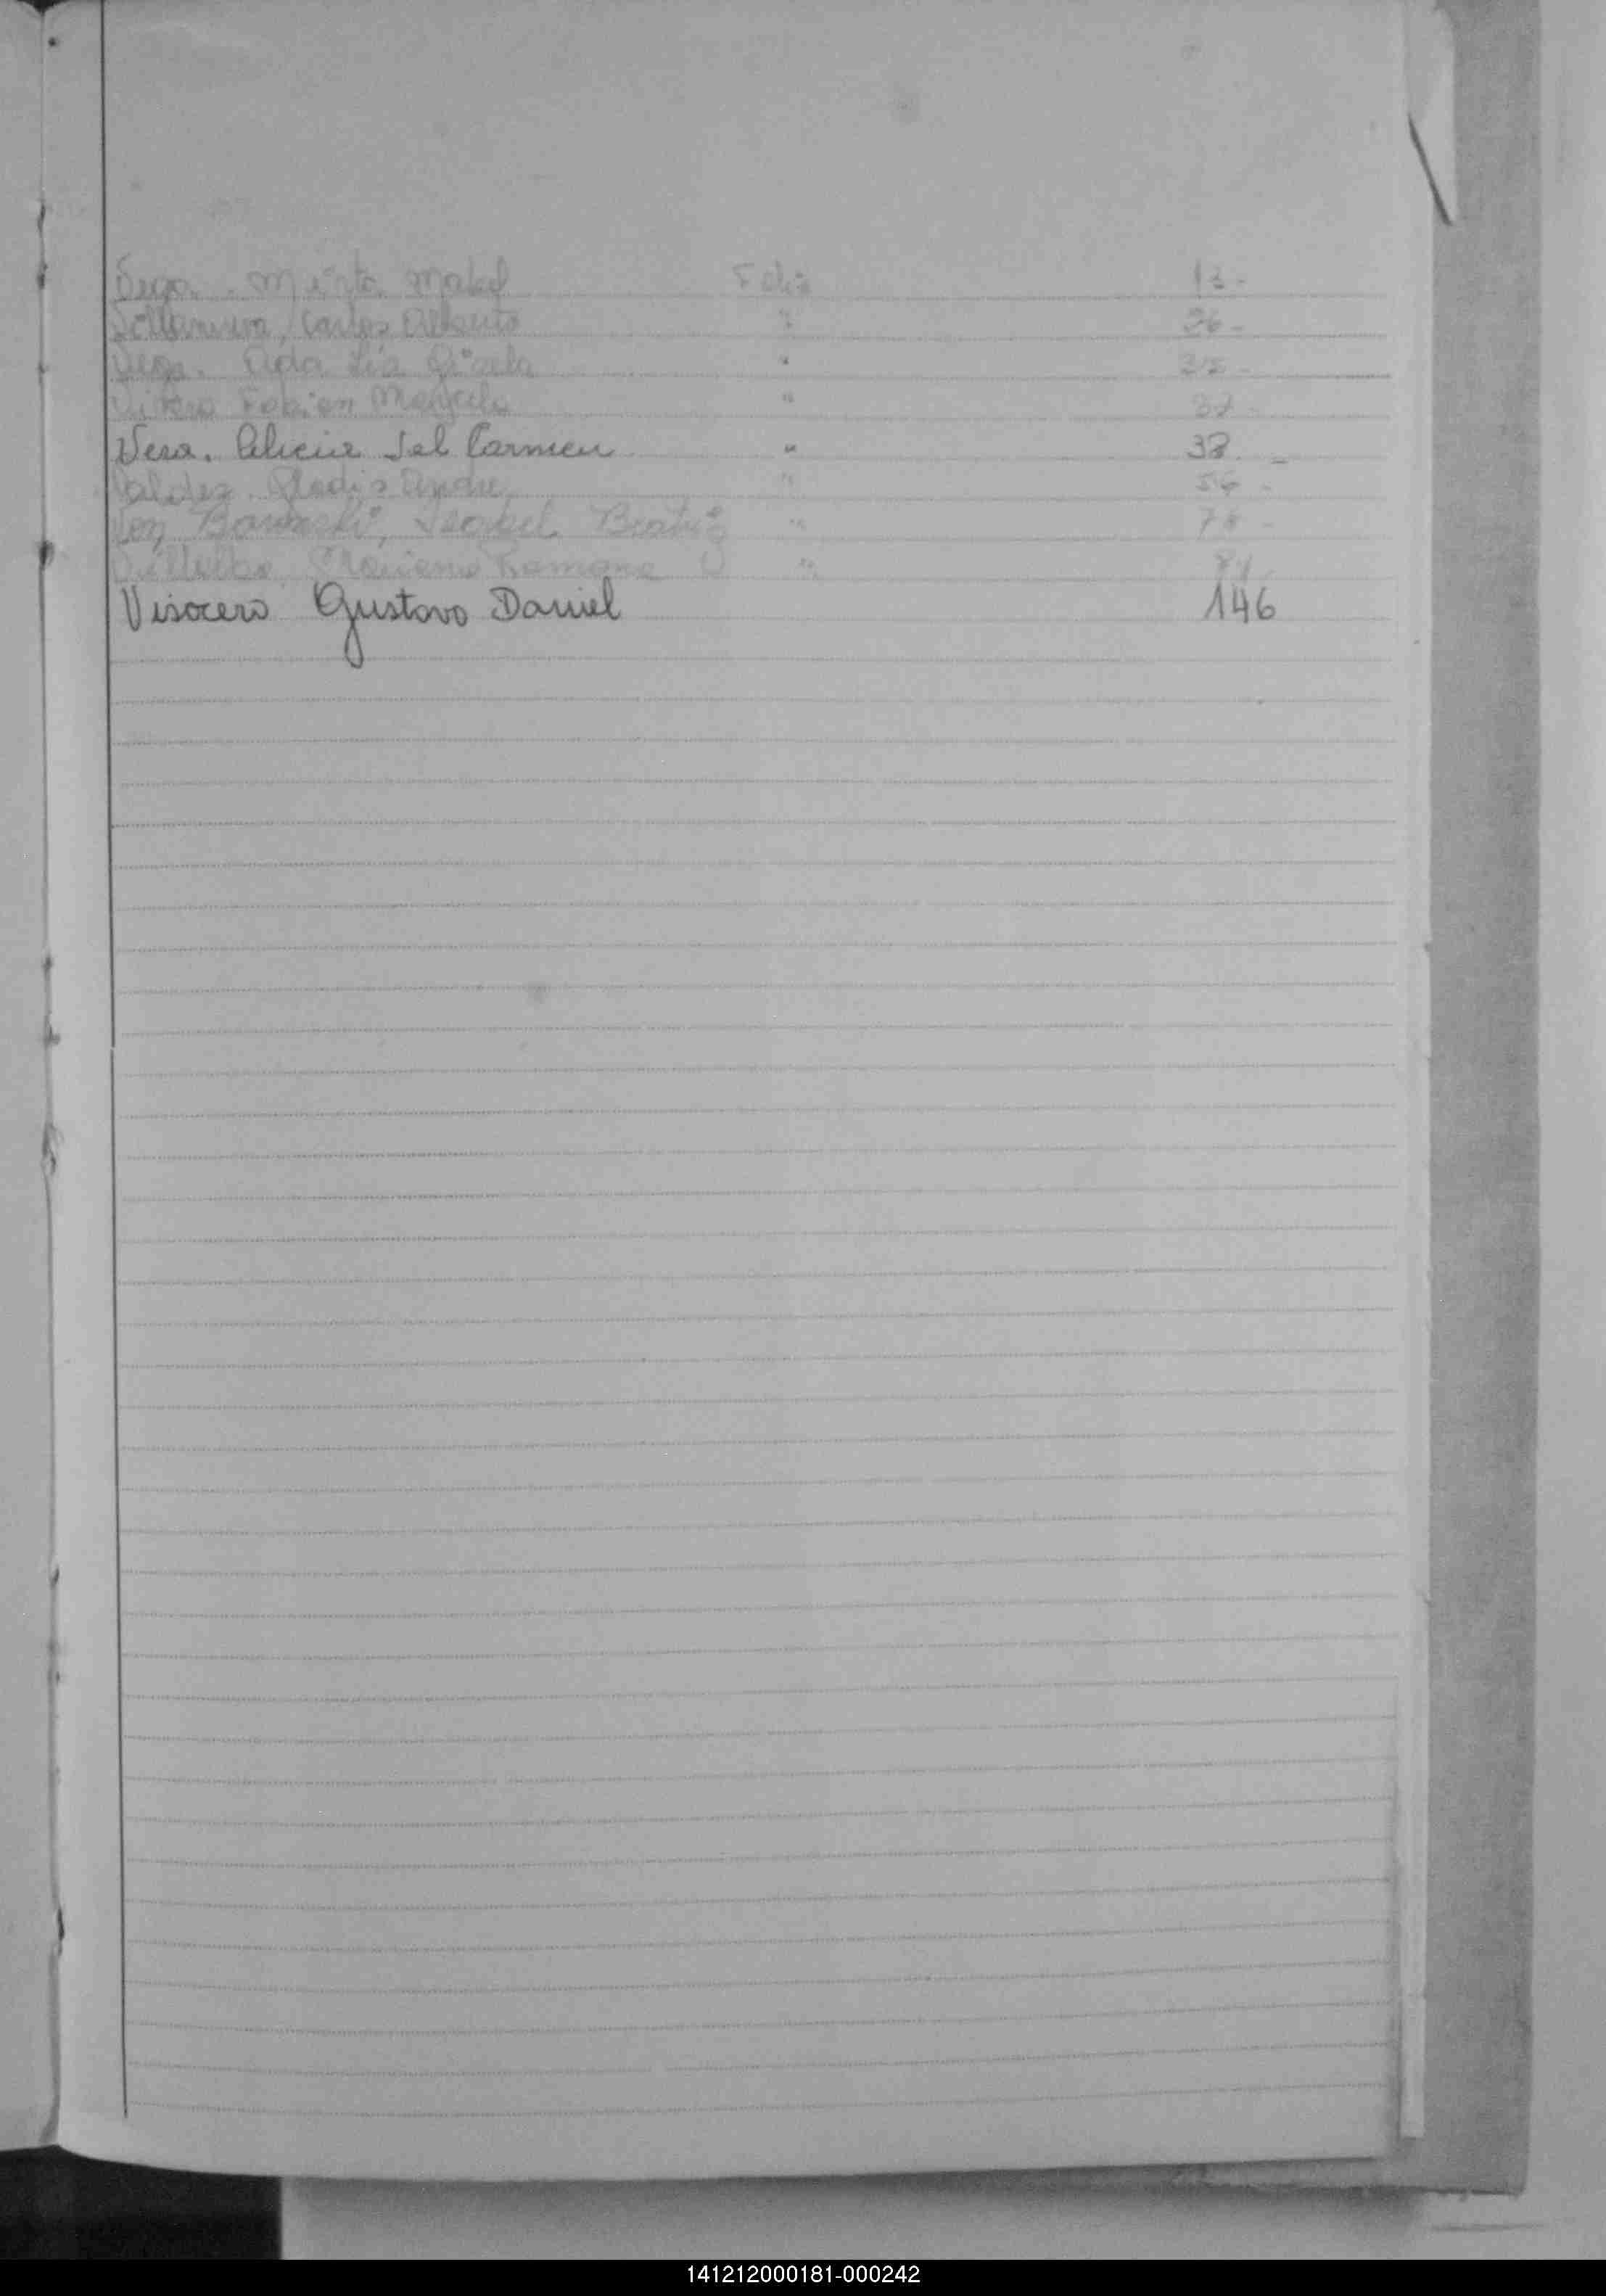 Vega. Mirta Mabel Folio 13-
Villanueva, Carlos Alberto " 26-
Vega. Aida Lia Gisela "
Fabian Marcelo " 37-
Vera. Alicia del Carmen " 38-
Valdez Gladis Andre " 56-
Von Isabel Beatriz " 78-
Villalba, Ramona " 84
Visocero Gustavo Daniel 146
141212000181-000242